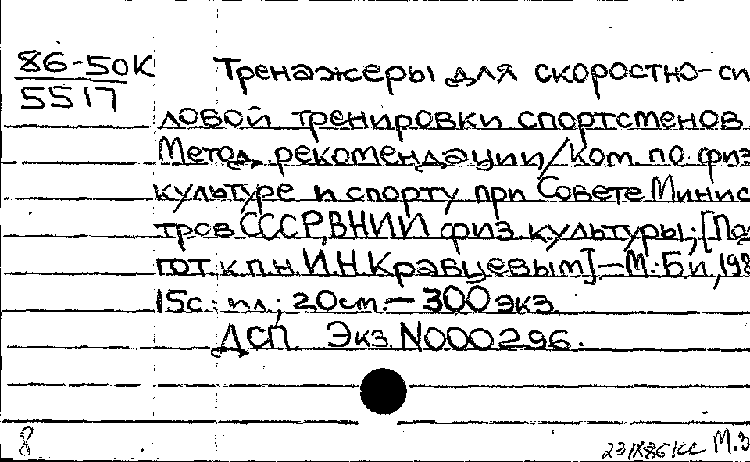 86-50к
5517
Тренажеры для скоростно-си
ловой тренировки спортсменов
Метод. рекомендации/Ком. по физ
культуре и спорту при Совете Минис
тров СССР, ВНИИ физ. культуры; [По
гот. к.п.н. И.Н. Кравцевым]. — М.: Б.и., 198
15с.: ил.; 20см. — 300 экз.
ДСП. Экз. N000296.
8
М.